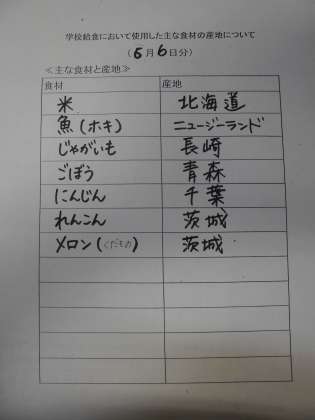 学校給食において使用した主な食材の産地について
(5月6日分)
≪主な食材と産地≫
食材 産地
米 北海道
魚(ホキ) ニュージーランド
じゃがいも 長崎
ごぼう 青森
にんじん 千葉
れんこん 茨城
メロン(くだもの) 茨城